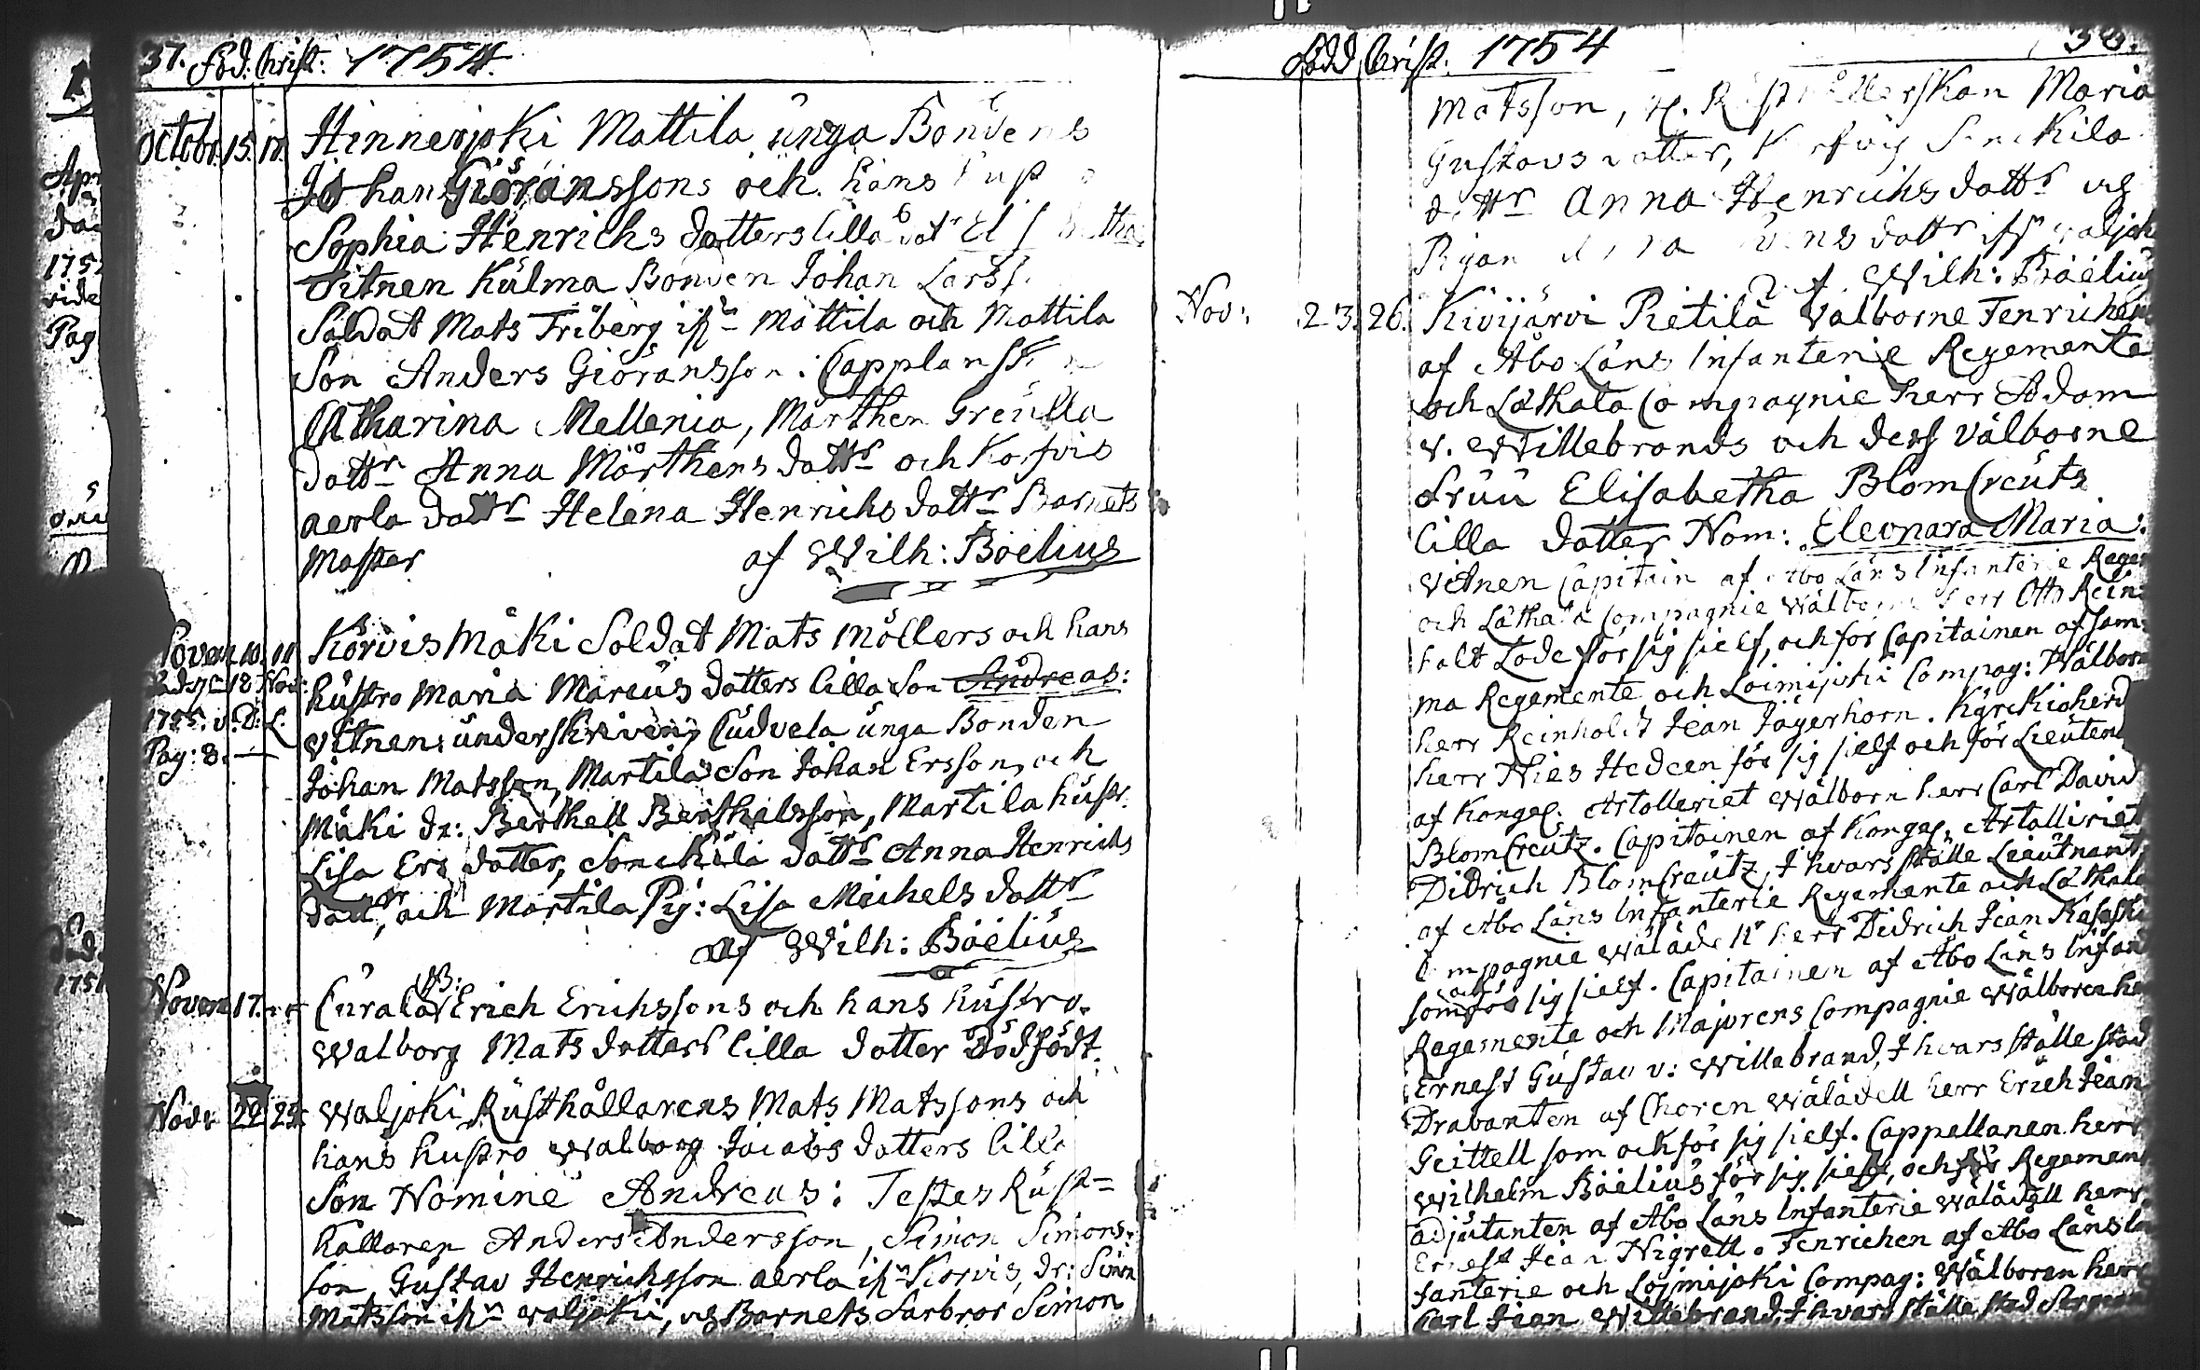 37. Föd. Christ: 1754.
Octobr. 15. 18. Hinnerjoki Mattila unga Bondens
Johan Giöranssons och hans
Sophia Henrichs dotters lilla dotr
Vitnen Kulma Bonden Johan Larss.
Soldat Mats Friberg ifrn Mattila och Mattila
Son Anders Giöransson. Capplansk
Catharina Mellenia, Mårthen Greulla
dottr Anna Mårthens dottr och Korfvis
aerla dottr Helena Henrichs dottr Barnets
Moster af Wilh: Boelius
Novem 10. 11 Korvis Mäki Soldat Mats Möllers och hans
18 Nov: hustro Maria Marcus dotters lilla Son Andreas:
1755. v. D. L. Vitnen: underskriven, Cudvela unga Bonden
Pag: 8. Johan Matsson, Martila Son Johan Ersson, och
Mäki dr: Berthell Berthelsson, Martila hustr.
Lisa Ers dotter, Sonckila dottr Anna Henrichs
dottr, och Martila Pig: Lisa Michels dottr
af Wilh: Boelius
Novem 17. Curala Erich Erichssons och hans hustro
Walborg Mats dotters lilla dotter Dödfödt.
Nov: 22 24 Waljoki Rusthållarens Mats Matssons och
hans hustro Walborg Jacobs dotters lilla
Son Nomine Andreas: Testes Rust=
hållaren Anders Andersson, Simon Simons-
son Gustav Henrichsson aerla ifrn Korvis, dr: Simon
Matsson ifrn Waljoki, och Barnets Farbror Simon
Född Christ. 1754 38.
Matsson, Maria
Gustavs dotter, Sonckila
dottr Anna Henrichs dottr och
dottr ifrn Waljoki
af Wilh: Boelius
Nov: 23. 26. Kivijärvi Pietilä Välborne Fenrichen
af Åbo Läns Infanterie Regemente
och Låthala Compagnie herr Adam
v. Willebrands och dess Välborne
Fruu Elisabetha Blomcreutz
lilla dotter Nom: Eleonara Maria:
Vitnen Capitain af Åbo Läns Infanterie Rege
och Låthala Compagnie Wälborne herr Otto Rein=
halt Lode för sig sielf, och för Capitainen af sam=
ma Regemente och Loimijoki Compag: Wälborn
herr Reinholdt Jean Jägerhorn. Kyrckioherd
herr Nies Hedeen för sig sielf och för Lieuten
af Kongel. Artolleriet Wälborn herr Carl David
Blomcreutz. Capitainen af Kongel. Artolleriet
Didrich Blomcreutz, I hvars ställe Lieutnant
af Åbo Läns Infanterie Regemente och Låthala
Compagnie Wäläde hr herr Didrich Jean
som och för sig sielf. Capitainen af Åbo Läns Infan
Regemente och Majorens Compagnie Wälboren he
Ernest Gustav v: Willebrand, I hvars ställe stod
Drabanten af Choren Wäläedell herr Erich Jean
Geittell som och för sig sielf. Cappellanen herr
Wilhelm Boelius för sig sielf, och för Regemen
adjutanten af Åbo Läns Infanterie Wäläedell herr
Ernest Jean Nigrell. Fenrichen af Åbo Läns In
fanterie och Loimijoki Compag: Wälboren herr
Carl Jean Willebrand, I hvars ställe stod